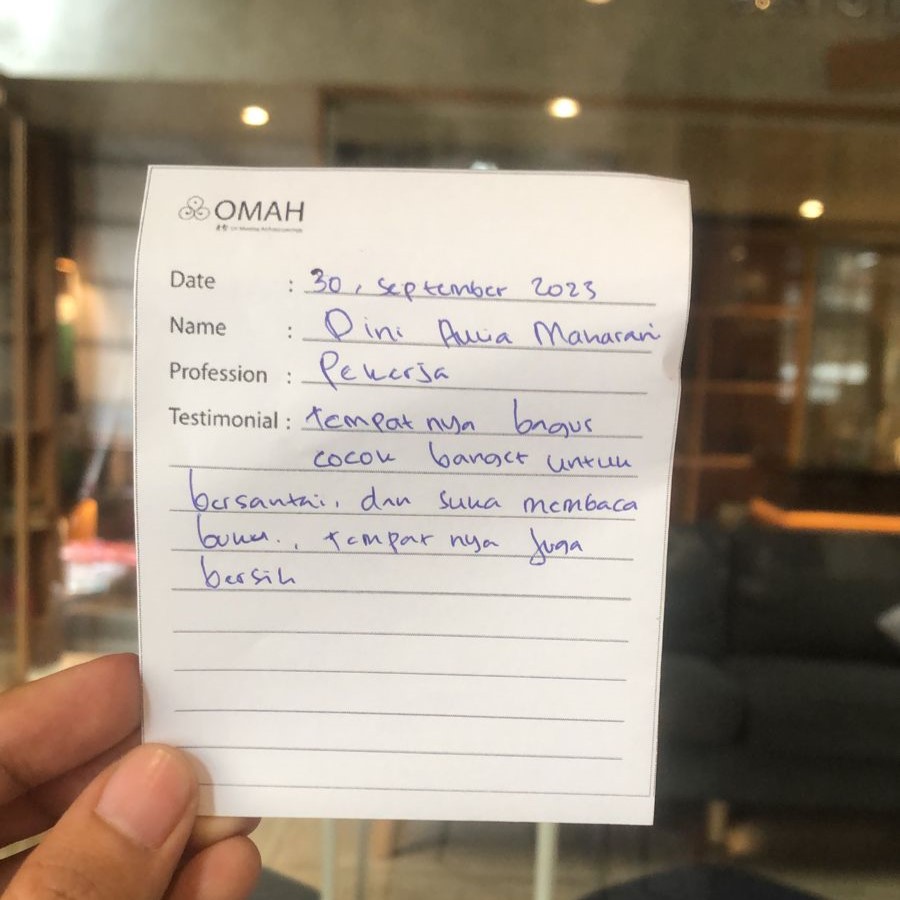 OMAH
Date : 30, September 2023
Name : Dini Aulia Maharani
Profession : Pekerja
Testimonial : tempat nya bagus
cocok banget untuk
bersantai, dan suka membaca
buku., tempat nya juga
bersih